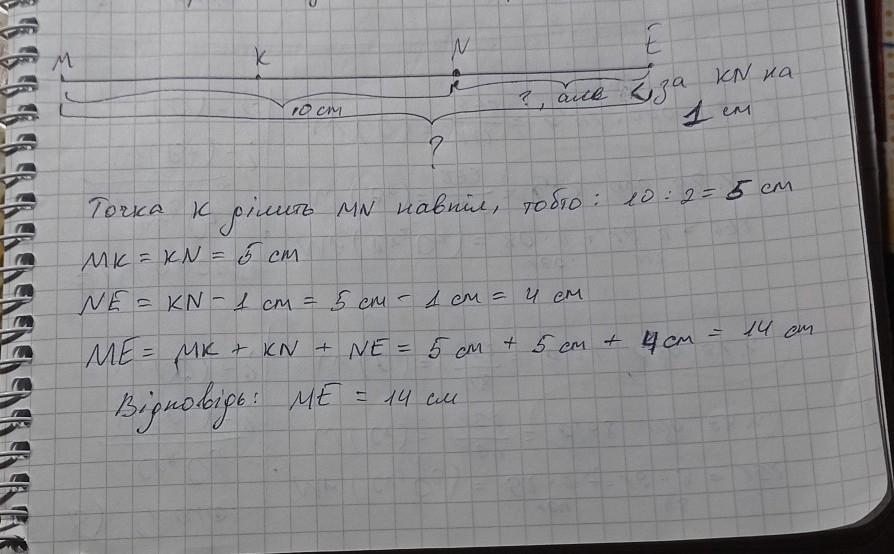 М К N Е
10 см ?, але < за KN на
1 см
?
Точка К ділить MN навпіл, тобто: 10 : 2 = 5 см
МК = KN = 5 см
NE = KN - 1 см = 5 см - 1 см = 4 см
МЕ = МК + KN + NE = 5 см + 5 см + 4 см = 14 см
Відповідь: МЕ = 14 см